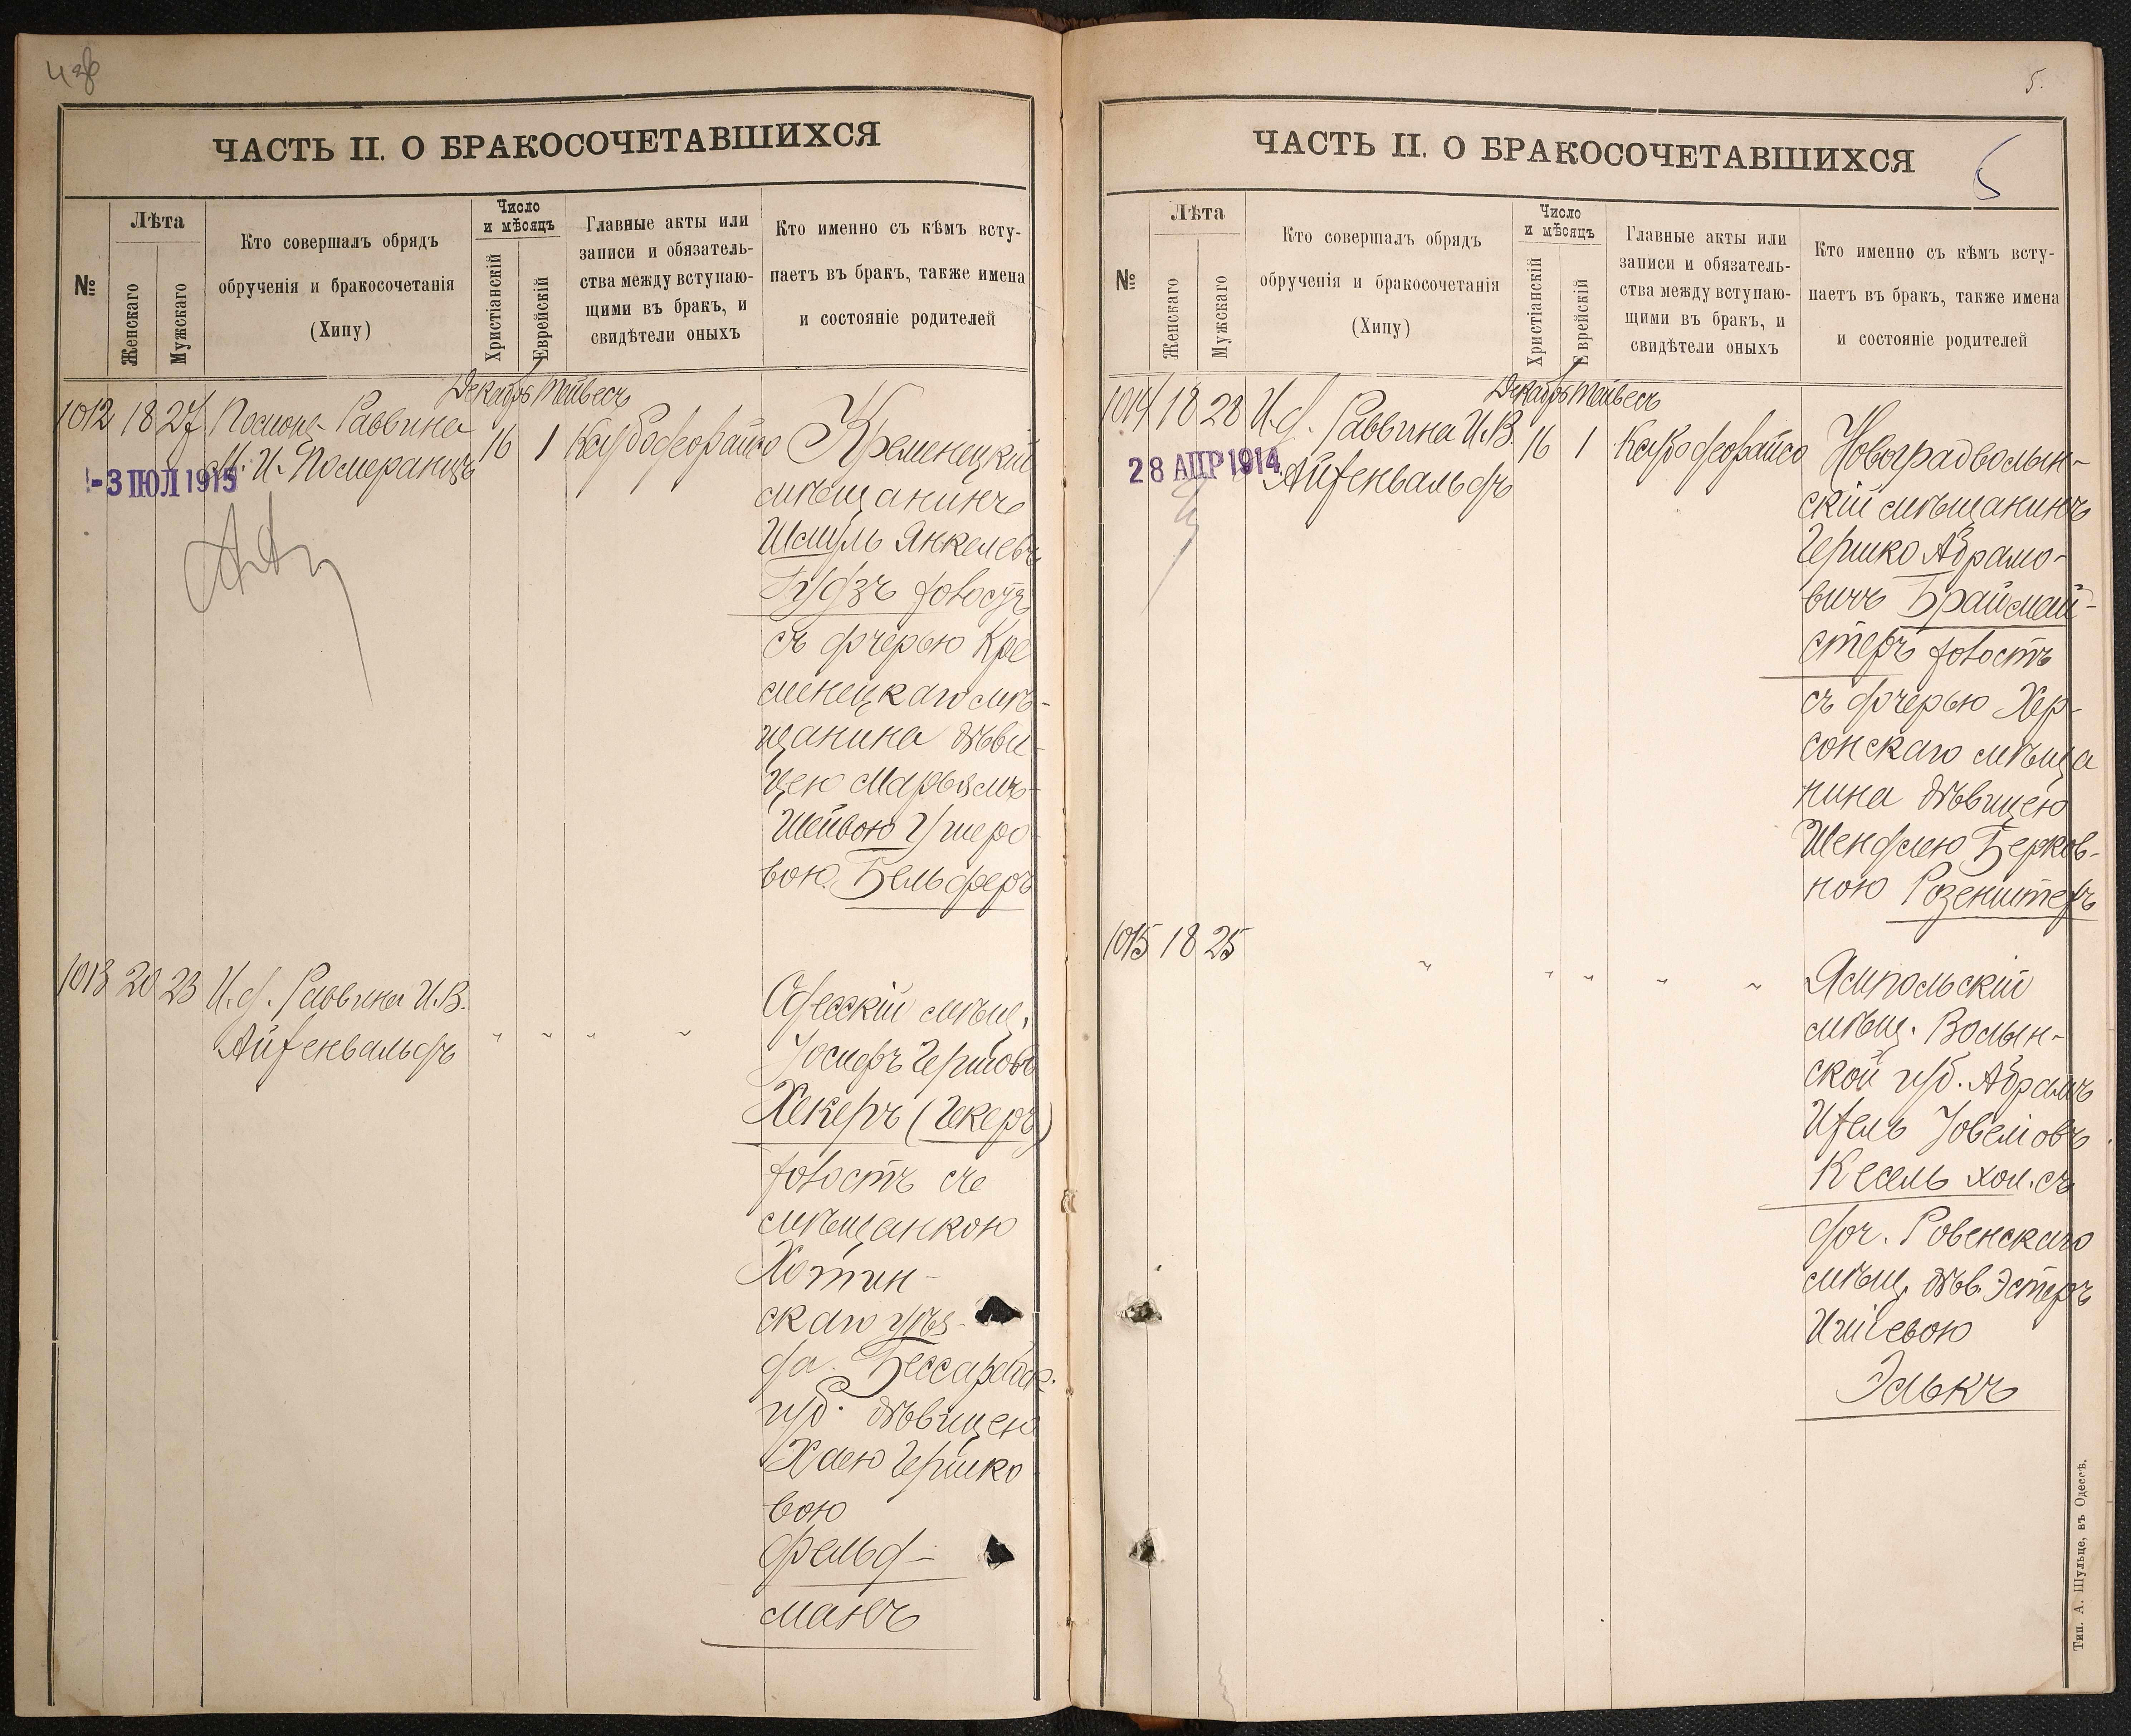 ЧАСТЬ II. О БРАКОСОЧЕТАВШИХСЯ
№
Лѣта
Женскаго
Мужскаго
Кто совершалъ обрядъ
обрученія и бракосочетанія
(Хипу)
Число
и мѣсяцъ
Христіанскій
Еврейскій
Главные акты или
записи и обязатель-
ства между вступаю-
щими въ бракъ, и
свидѣтели оныхъ
Кто именно съ кѣмъ всту-
паетъ въ бракъ, также имена
и состояніе родителей
Декабрь Тейвесъ
1012 18 27 Помощ. Раввина
М. И. Померанцъ
16 1
-3 ІЮЛ 1915
Кременецкій
мѣщанинъ
Шмуль Янкелевъ
Гудзъ холостъ
съ дочерью Кре
менецкаго мѣ-
щанина дѣви-
цею Марьямъ-
Шейвою Ушеро
вою Бельферъ
1013 20 23 И. д. Раввина И. В.
Айзенвальдъ
" " " "
Одесскій мѣщ.
Іосифъ Гершовъ
Хекеръ (Гекеръ)
холостъ съ
мѣщанкою
Хотин-
скаго уѣз-
да Бессарабск.
губ. дѣвицею
Хаею Гершко
вою
Фельд-
манъ
5.
5
ЧАСТЬ II. О БРАКОСОЧЕТАВШИХСЯ
№
Лѣта
Женскаго
Мужскаго
Кто совершалъ обрядъ
обрученія и бракосочетанія
(Хипу)
Число
и мѣсяцъ
Христіанскій
Еврейскій
Главные акты или
записи и обязатель-
ства между вступаю-
щими въ бракъ, и
свидѣтели оныхъ
Кто именно съ кѣмъ всту-
паетъ въ бракъ, также имена
и состояніе родителей
Декабрь Тейвесъ
1014 18 28 И. д. Раввина И. В.
Айзенвальдъ
16 1
28 АПР 1914
Новоградволын-
скій мѣщанинъ
Гершко Абрамо-
вичъ Браймей-
стеръ холостъ
съ дочерью Хер-
сонскаго мѣща
нина дѣвицею
Шендлею Берков-
ною Розенштеръ
1015 18 25
" " " " "
Ямпольскій
мѣщ. Волын-
ской губ. Абрамъ
Ицель Іовеліовъ
Кесель хол. съ
доч. Ровенскаго
мѣщ. дѣв. Эстеръ
Ишіевою
Элькъ
Тип. А. Шульце, въ Одессѣ.